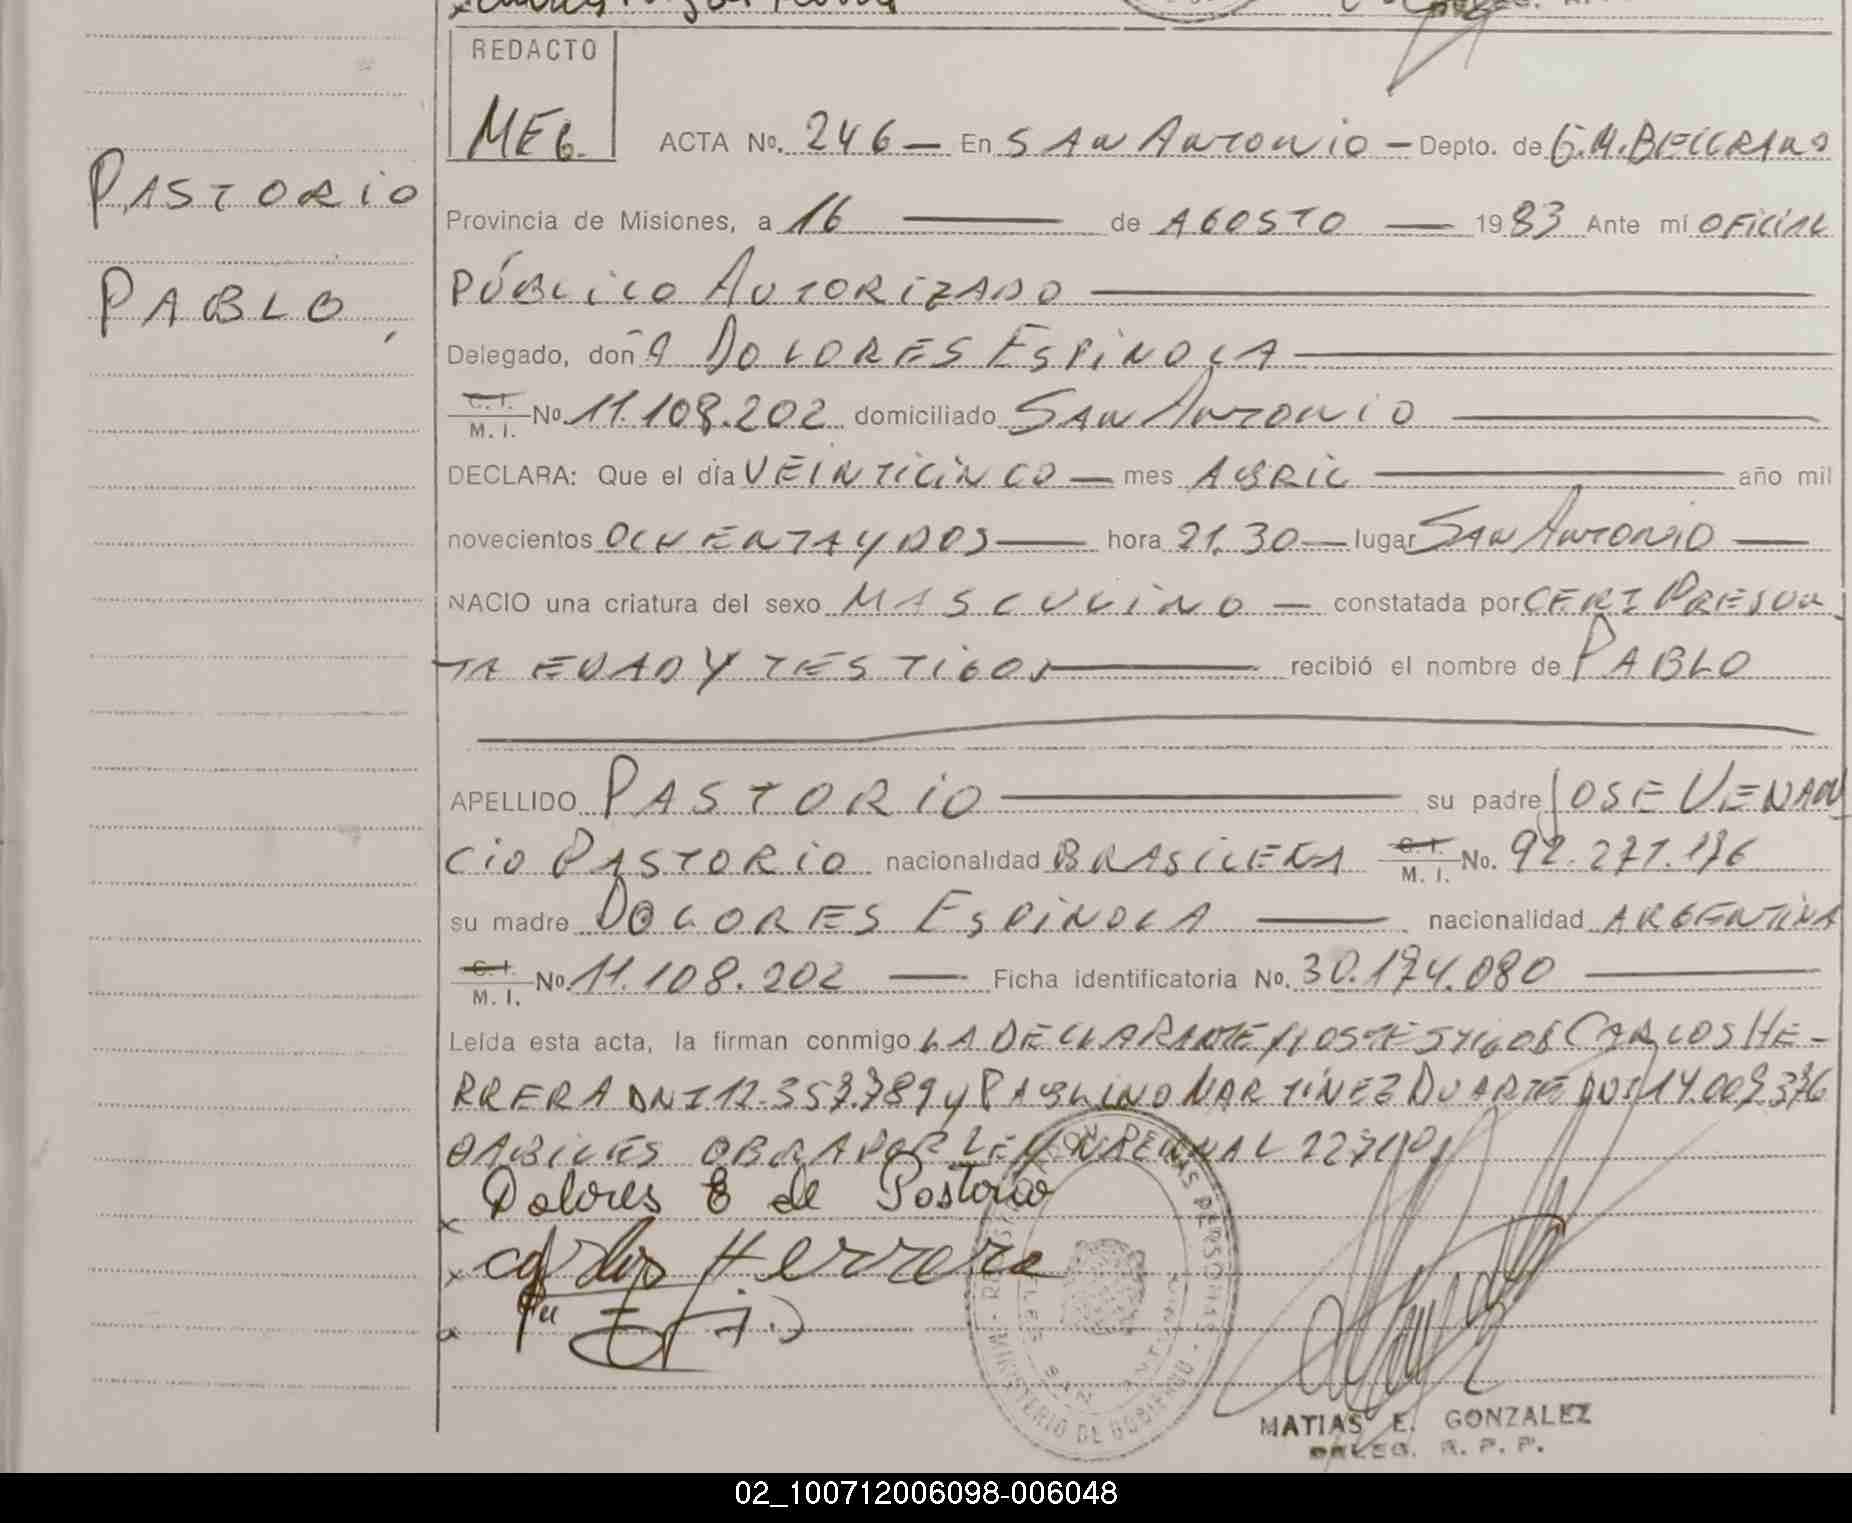 REDACTO
MEG.
ACTA No. 246 — En SAN ANTONIO — Depto. de G.M.BELGRANO
PASTORIO
Provincia de Misiones, a 16 — de AGOSTO — 1983 Ante mí OFICIAL
PABLO
PÚBLICO AUTORIZADO —
Delegado, doñA DOLORES ESPINOLA —
C. I. M. I. No. 11.108.202 domiciliado SAN ANTONIO —
DECLARA: Que el día VEINTICINCO — mes ABRIL — año mil
novecientos OCHENTA Y DOS — hora 21.30 — lugar SAN ANTONIO —
NACIO una criatura del sexo MASCULINO — constatada por CERT PRESUN
TA EDAD Y TESTIGOS — recibió el nombre de PABLO
APELLIDO PASTORIO — su padre JOSE VENAN
CIO PASTORIO nacionalidad BRASILEÑA C. I. M. I. No. 92.271.176
su madre DOLORES ESPINOLA — nacionalidad ARGENTINA
C. I. M. I. No. 11.108.202 — Ficha identificatoria No. 30.174.080 —
Leída esta acta, la firman conmigo LA DECLARANTE, LOS TESTIGOS CARLOS HE-
RRERA DNI 12.357.789 y PAULINO MARTINEZ DUARTE DNI 14.009.376
HABILES OBRA POR LEY NACIONAL
Dolores E de Pastorio
x Carlos Herrera
MINISTERIO DE GOBIERNO - DE LAS PERSONAS
MATIAS E. GONZALEZ
DELEG. R. P. P.
02_100712006098-006048